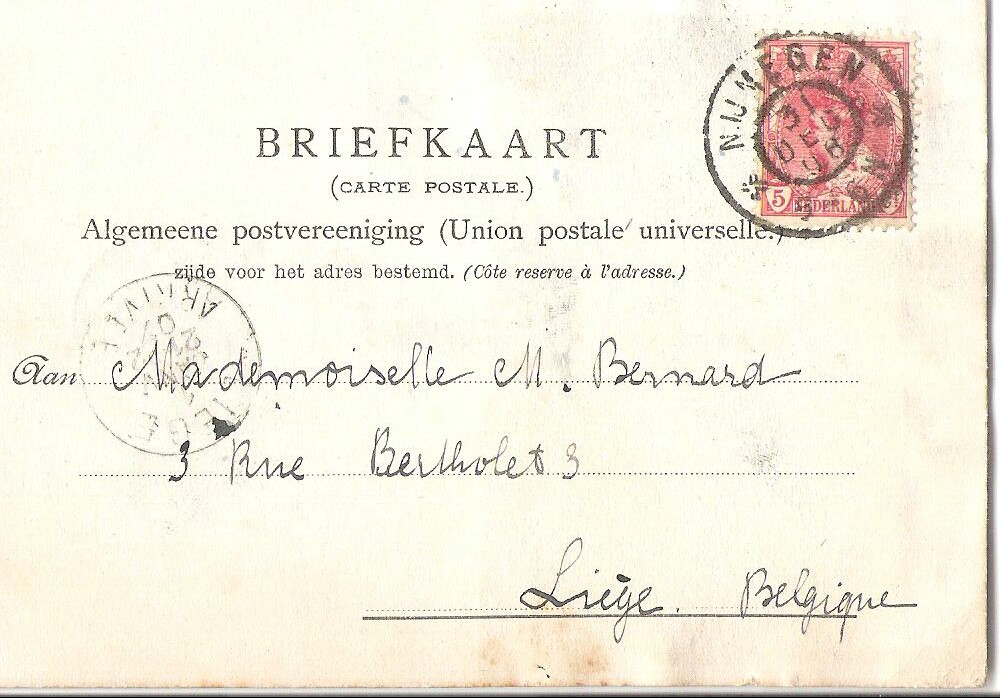 NIJMEGEN
31 DEC
5 NEDERLAND
BRIEFKAART
(CARTE POSTALE.)
Algemeene postvereeniging (Union postale universelle.)
zijde voor het adres bestemd. (Côte reserve à l'adresse.)
ARRIVÉE
Aan Mademoiselle M. Bernard
3 Rue Bertholet 3
Liège. Belgique